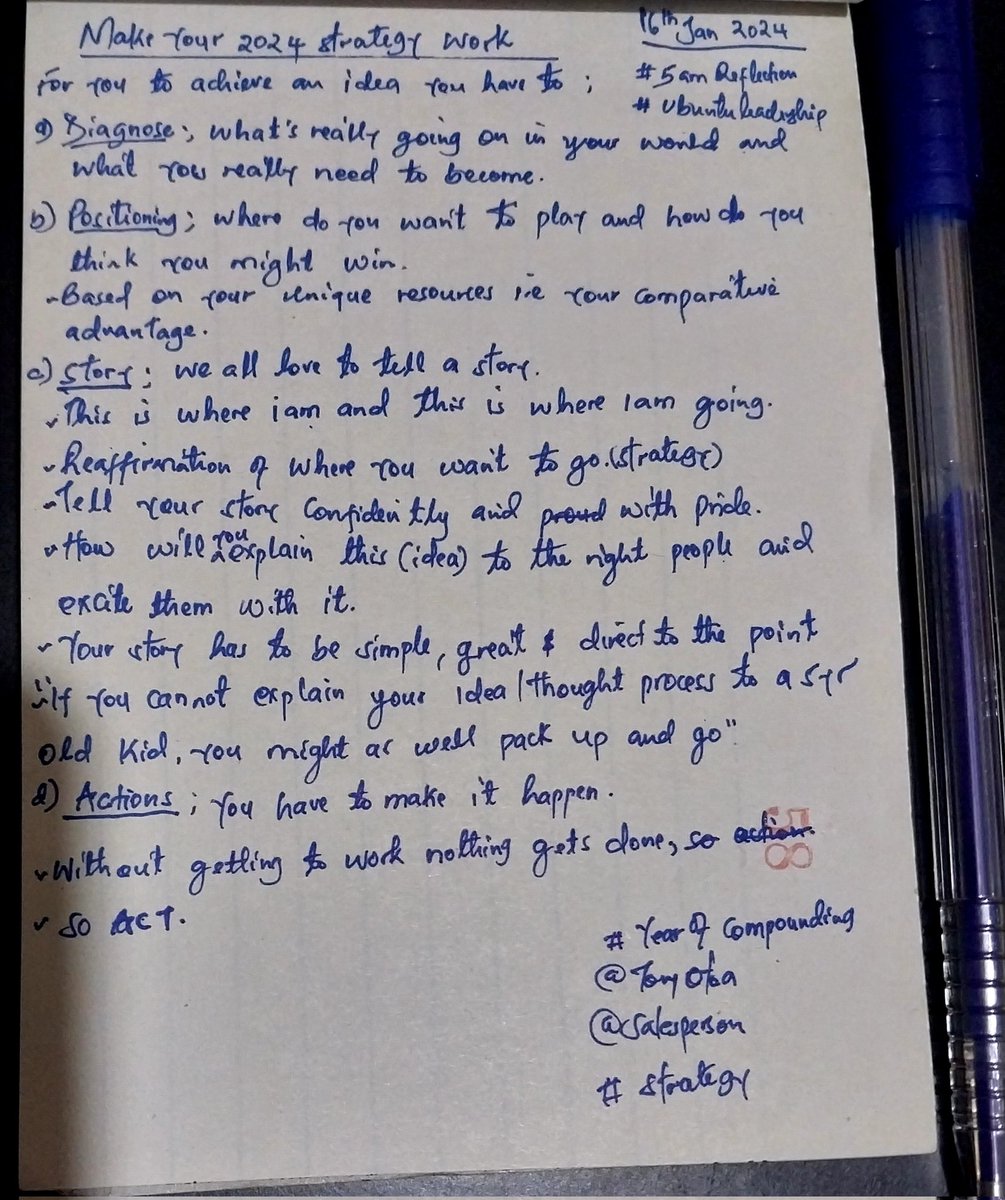 Make Your 2024 strategy work
16th Jan 2024
# 5am Reflection
# Ubuntu leadership
For you to achieve an idea you have to ;
a) Diagnose; what's really going on in your world and
what you really need to become.
b) Positioning; where do you want to play and how do you
think you might win.
- Based on your unique resources i.e your comparative
advantage.
c) Story; we all love to tell a story.
- This is where i am and this is where I am going.
- Reaffirmation of where you want to go. (strategy)
- Tell your story confidently and proud with pride.
- How will you explain this (idea) to the right people and
excite them with it.
- Your story has to be simple, great & direct to the point
"If you cannot explain your idea/thought process to a 5yr
old kid, you might as well pack up and go"
d) Actions; You have to make it happen.
- Without getting to work nothing gets done, so action.
- So ACT.
58
# Year of compounding
@Tony
@Salesperson
# strategy